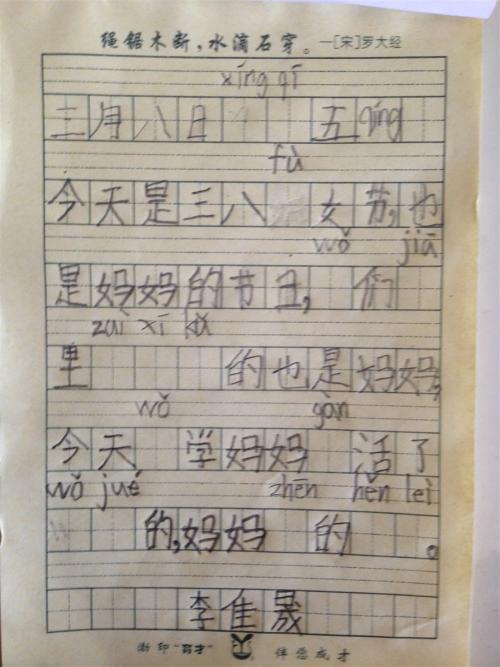 绳锯木断，水滴石穿。—[宋]罗大经
xīng qī
三月八日 五 qíng
fù
今天是三八 女节，也
wǒ jiā
是妈妈的节日， 们
zuì xī
里 的也是妈妈，
wǒ gàn
今天 学妈妈 活了
wǒ jué zhēn hěn lèi
的，妈妈 的 。
李佳晟
伴您成才